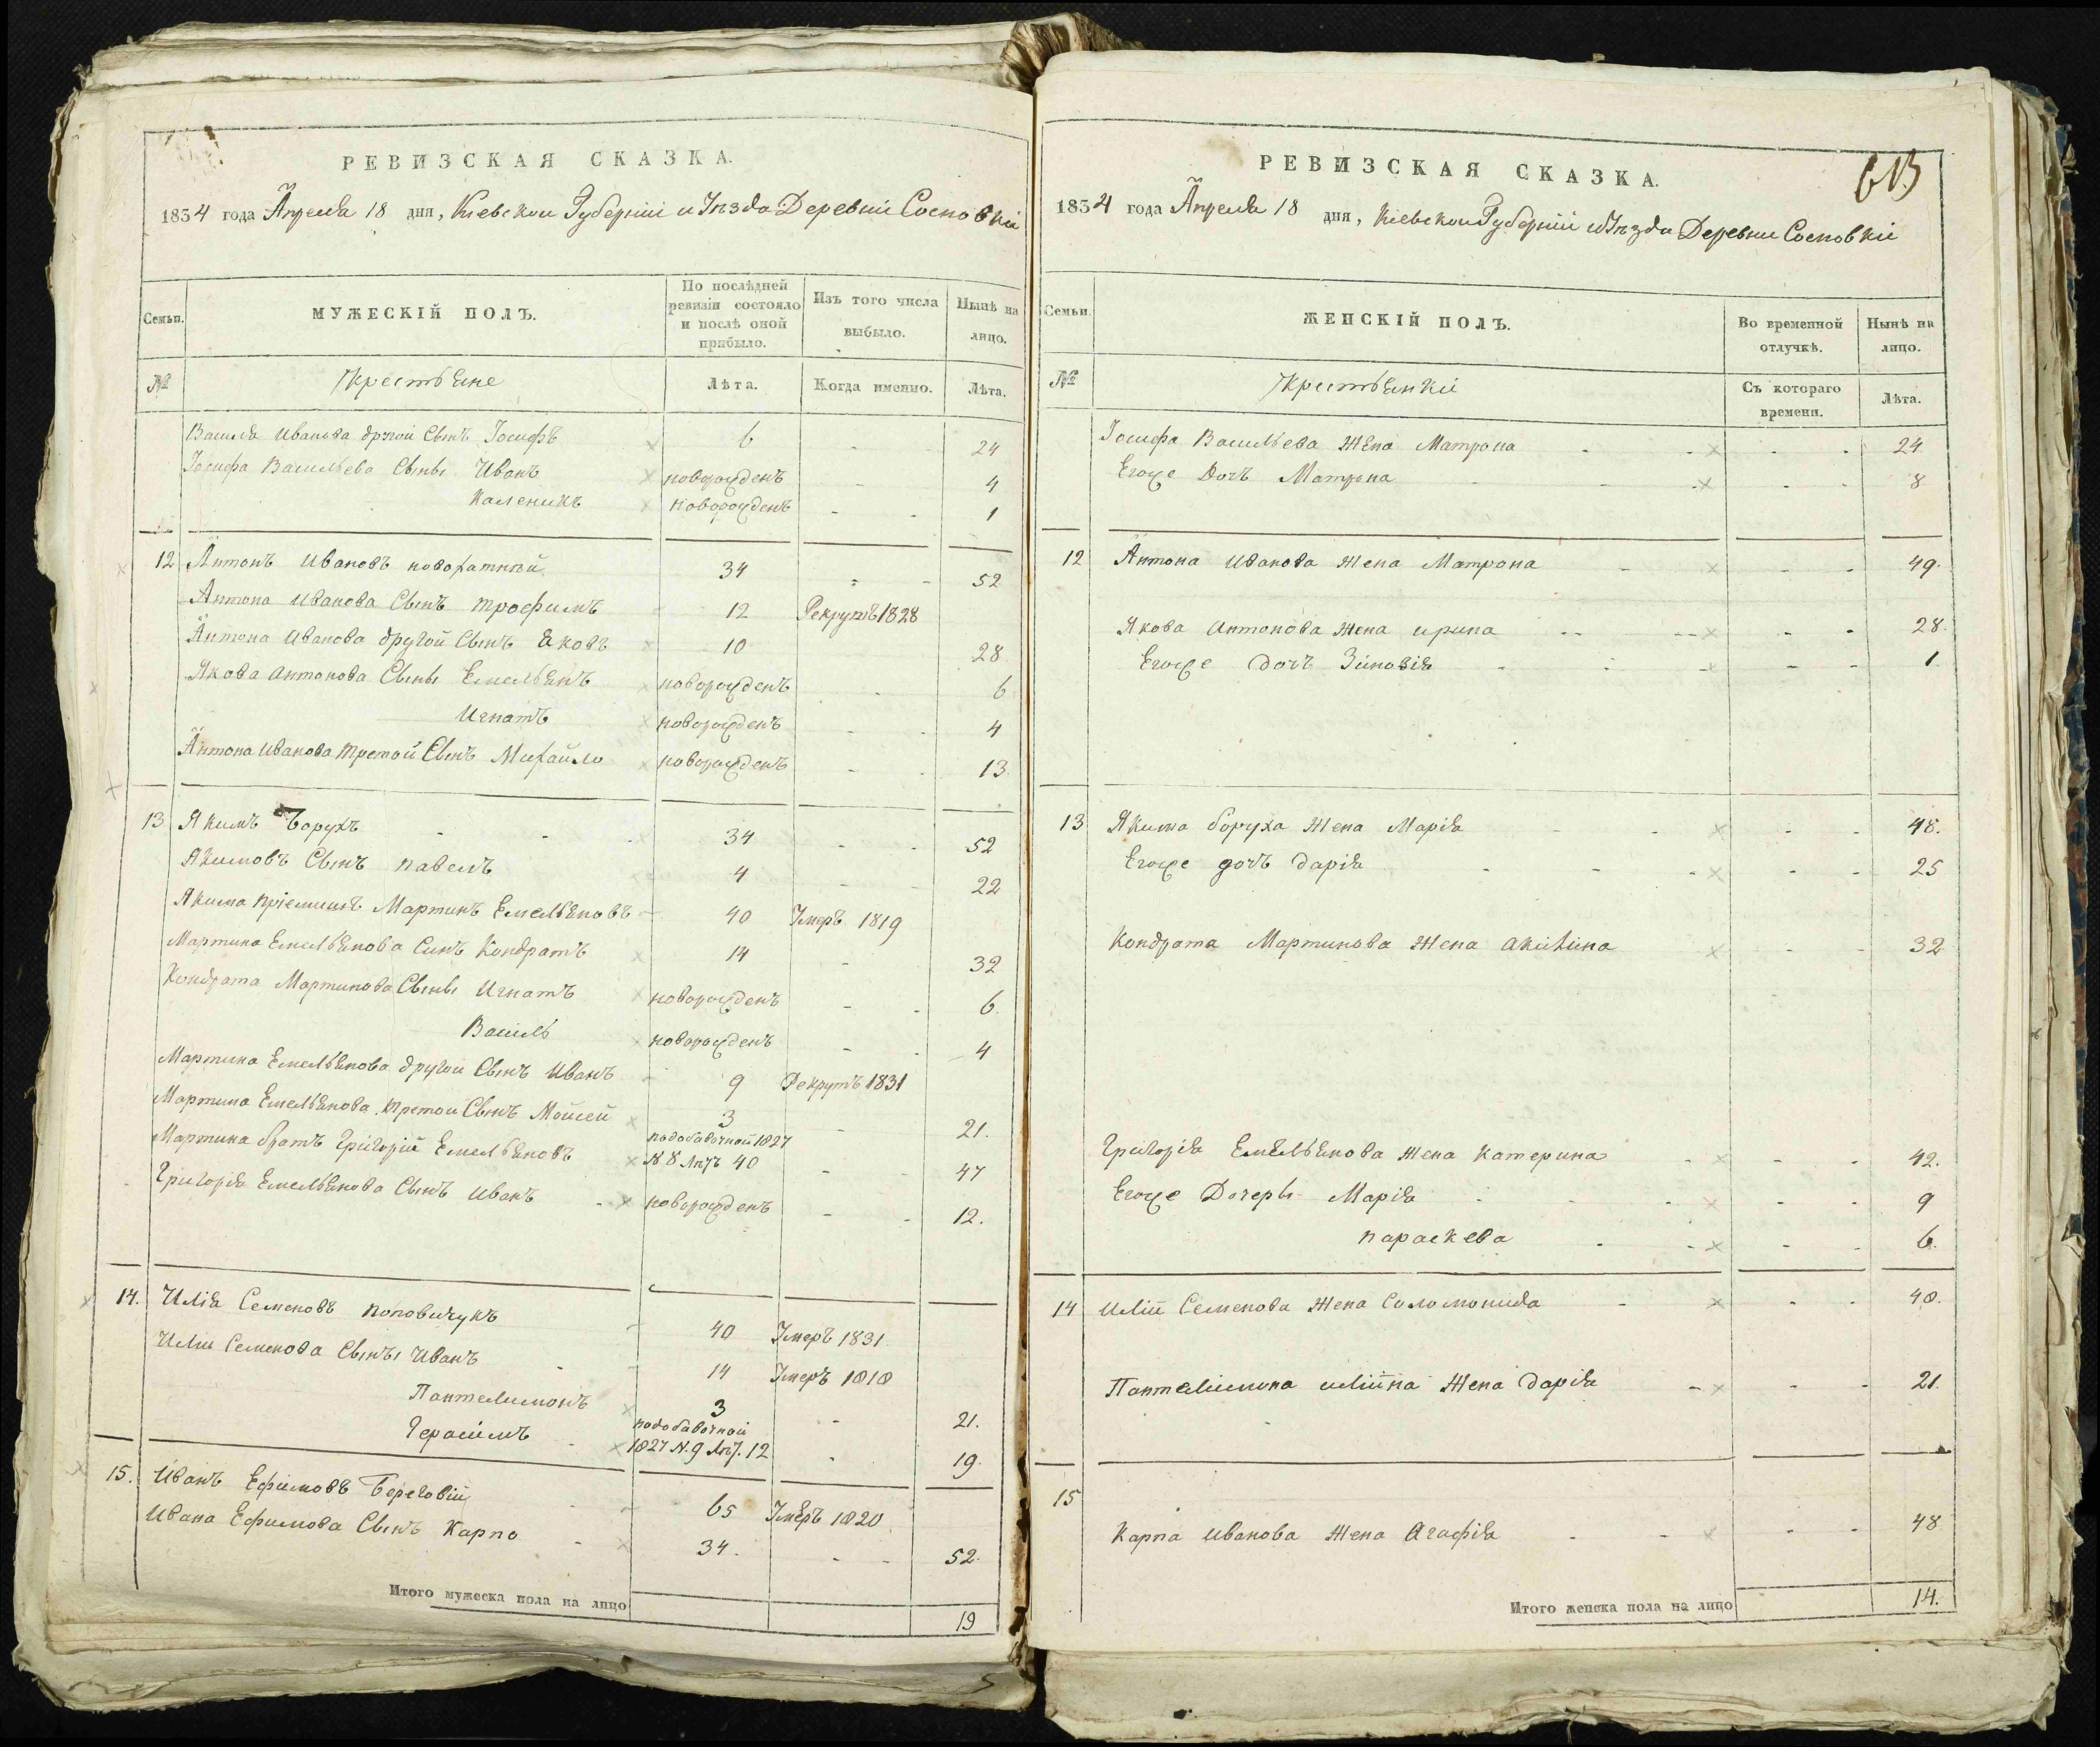 РЕВИЗСКАЯ СКАЗКА.
1834 года Апреля 18 дня, Киевской Губерніи и Уѣзда Деревни Сосновки
Семьи.
МУЖЕСКІЙ ПОЛЪ.
По послѣдней ревизіи состояло и послѣ оной прибыло.
Изъ того числа выбыло.
Нынѣ на лицо.
№
Крестьяне
Лѣта.
Когда именно.
Лѣта.
Василя Иванова другой Сынъ Іосифъ 6 - - 24
Іосифа Васильева Сыны Иванъ новорожденъ - - 4
Каленикъ новорожденъ - - 1
12 Антонъ Ивановъ 34 - - 52
Антона Иванова Сынъ трофимъ 12 Рекрутъ 1828
Антона Иванова другой Сынъ Яковъ 10 28
Якова антонова Сыны Емельянъ новорожденъ - 6
Игнатъ новорожденъ - - 4
Антона Иванова третой Сынъ Михайло новорожденъ - - 13
13 Якимъ Борухъ 34 - - 52
Якимовъ Сынъ павелъ 4 - - 22
Якима пріемишъ Мартинъ Емельяновъ 40 Умеръ 1819
Мартина Емельянова Синъ Кондратъ 14 - 32
Кондрата Мартинова Сыны Игнатъ новорожденъ - - 6.
Василь новорожденъ - - 4
Мартина Емельянова другой Сынъ Иванъ 9 Рекрутъ 1831
Мартина Емельянова третой Сынъ Мойсей 3 - 21.
Мартина братъ Григорій Емельяновъ подобавочной 1827 № 8 лѣтъ 40 - - 47
Григорія Емельянова Сынъ иванъ новорожденъ - - 12.
14. Илія Семеновъ поповичукъ 40 Умеръ 1831
Иліи Семенова Сынъı Иванъ 14 Умеръ 1818
Пантелимонъ 3 - 21.
Герасимъ подобавочной 1827 N. 9 лѣт. 12 - 19.
15. Иванъ Ефимовъ Береговій 65 Умеръ 1820
Ивана Ефимова Сынъ Карпо 34. - - 52.
Итого мужеска пола на лицо 19
613
РЕВИЗСКАЯ СКАЗКА.
1834 года Апреля 18 дня, Киевской Губерніи и Уѣзда Деревни Сосновки
Семьи.
ЖЕНСКІЙ ПОЛЪ.
Во временной отлучкѣ.
Нынѣ на лицо.
№
Крестьянки
Съ котораго времени.
Лѣта.
Іосифа Васильева Жена Матрона - - 24
Егоже Дочъ Матрона - - 8
12 Антона Иванова Жена Матрона - - 49.
Якова Антонова Жена ирина - - 28.
Егоже дочъ Зиновія - - 1.
13 Якима боруха Жена Марія - - 48.
Егоже дочъ дарія - - 25
Кондрата Мартинова Жена акилина - - 32
Григорія Емельянова Жена катерина - - 42.
Егоже Дочеры Марія - - 9
параскева - - 6.
14 Иліи Семенова Жена Соломонида - - 40.
Пантелимона иліина Жена дарія - - 21.
15
Карпа иванова Жена Агафія - - 48
Итого женска пола на лицо 14.